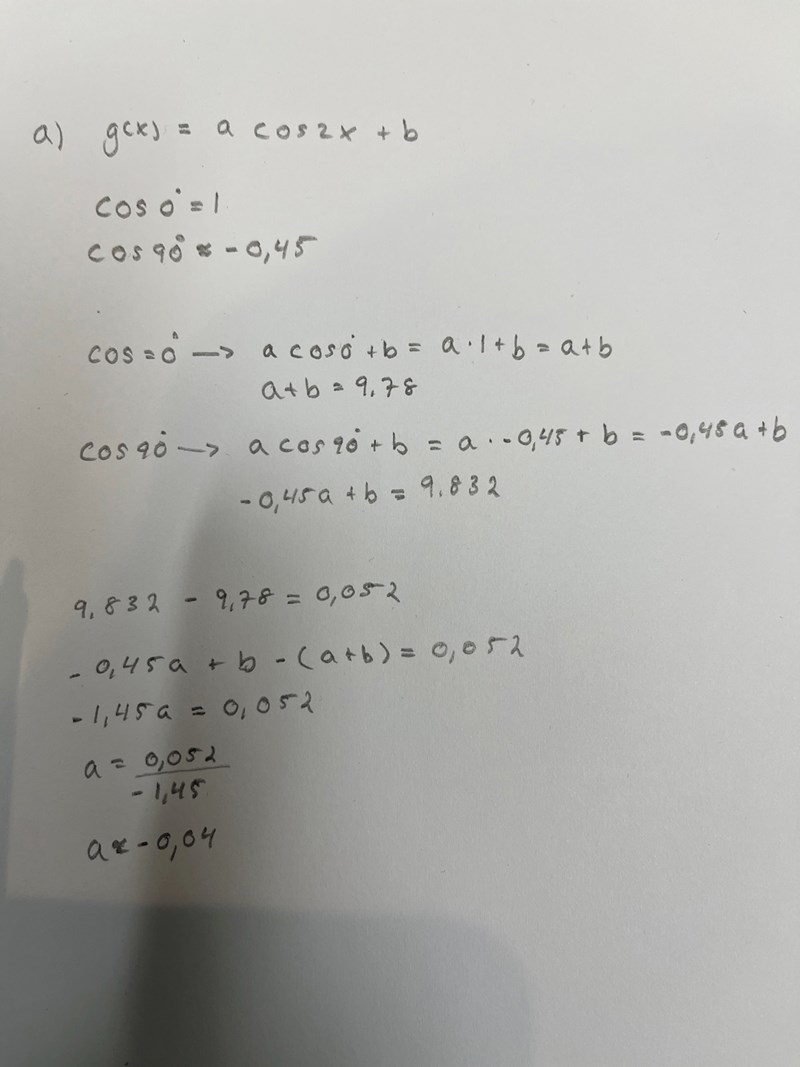 a) g(x) = a cos2x + b
cos 0° = 1
cos 90° ≈ -0,45
cos = 0° → a cos0° + b = a · 1 + b = a+b
a+b = 9,78
cos 90° → a cos 90° + b = a · -0,45 + b = -0,45a + b
-0,45a + b = 9.832
9,832 - 9,78 = 0,052
-0,45a + b - (a+b) = 0,052
-1,45a = 0,052
a = 0,052 / -1,45
a ≈ -0,04